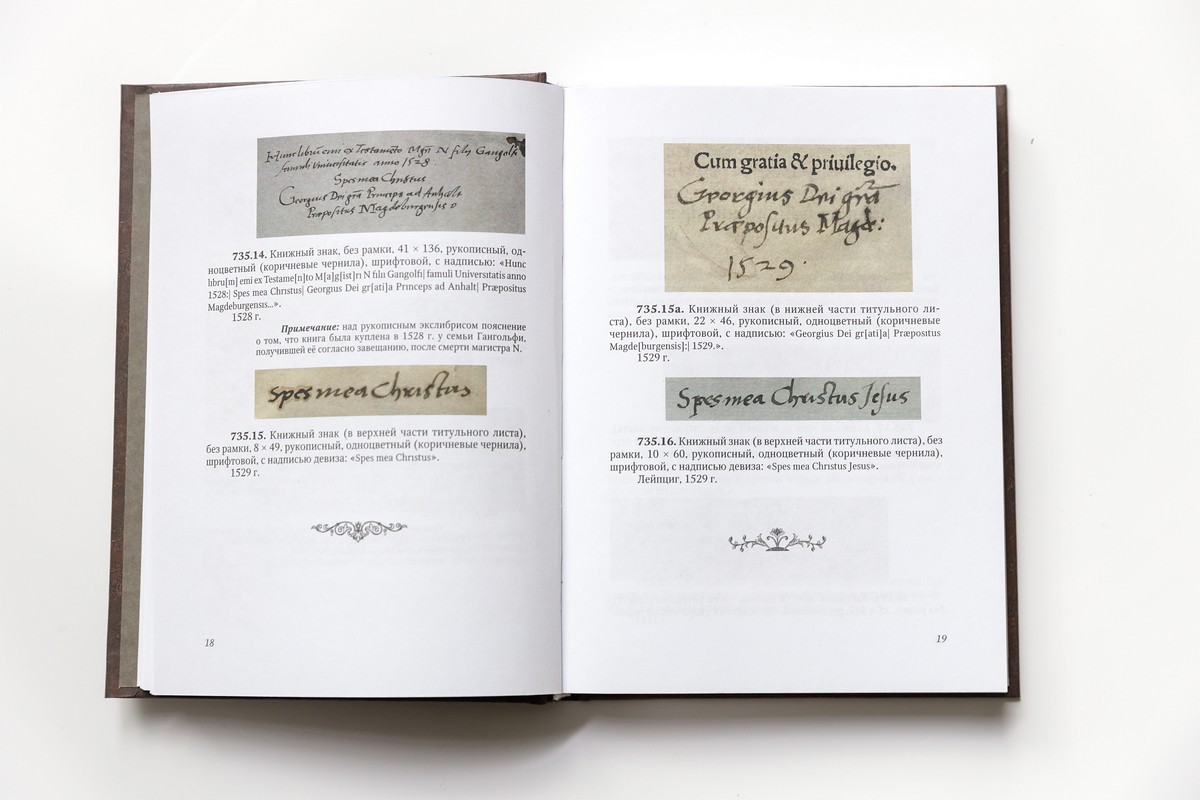 Hunc libru emi ex Testameto Mgri N filij Gangolfi
famuli Universitatis anno 1528.
Spes mea Christus
Georgius Dei gra Princeps ad Anhalt
Præpositus Magdeburgensis
735.14. Книжный знак, без рамки, 41 × 136, рукописный, од-
ноцветный (коричневые чернила), шрифтовой, с надписью: «Hunc
libru[m] emi ex Testame[n]to M[a]g[ist]ri N filii Gangolfi| famuli Universitatis anno
1528:| Spes mea Christus| Georgius Dei gr[ati]a Princeps ad Anhalt| Præpositus
Magdeburgensis...».
1528 г.
Примечание: над рукописным экслибрисом пояснение
о том, что книга была куплена в 1528 г. у семьи Гангольфи,
получившей её согласно завещанию, после смерти магистра N.
Spes mea Christus
735.15. Книжный знак (в верхней части титульного листа),
без рамки, 8 × 49, рукописный, одноцветный (коричневые чернила),
шрифтовой, с надписью девиза: «Spes mea Christus».
1529 г.
18
Cum gratia & priuilegio.
Georgius Dei gra
Præpositus Magde:
1529.
735.15а. Книжный знак (в нижней части титульного ли-
ста), без рамки, 22 × 46, рукописный, одноцветный (коричневые
чернила), шрифтовой, с надписью: «Georgius Dei gr[ati]a| Præpositus
Magde[burgensis]:| 1529.».
1529 г.
Spes mea Christus Jesus
735.16. Книжный знак (в верхней части титульного листа), без
рамки, 10 × 60, рукописный, одноцветный (коричневые чернила),
шрифтовой, с надписью девиза: «Spes mea Christus Jesus».
Лейпциг, 1529 г.
19